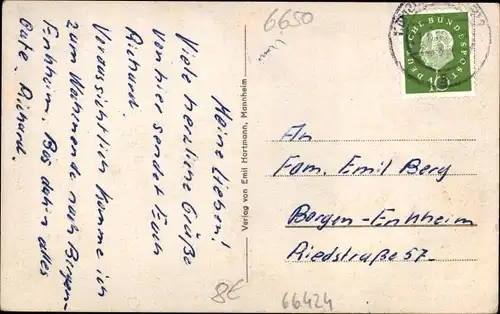 Meine Lieben!
Viele herzliche Grüße
von hier sendet Euch
Richard.
Voraussichtlich komme ich
zum Wochenende nach Bergen-
Enkheim. Bis dahin alles
Gute. Richard.
Verlag von Emil Hartmann, Mannheim
6650
DEUTSCHE BUNDESPOST
10
An
Fam. Emil Berg
Bergen-Enkheim
Riedstraße 57.
8€
66424